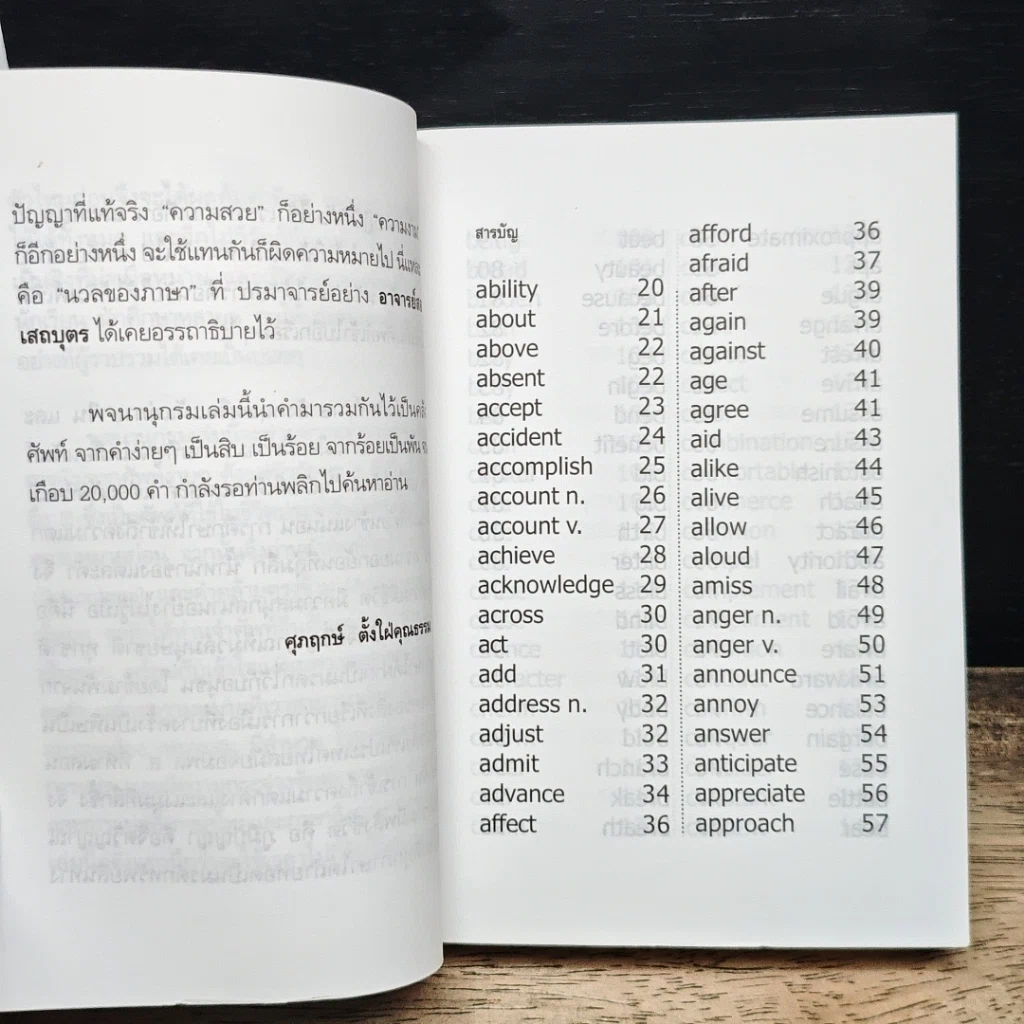 ปัญญาที่แท้จริง “ความสวย” ก็อย่างหนึ่ง “ความงาม
ก็อีกอย่างหนึ่ง จะใช้แทนกันก็ผิดความหมายไป
คือ “นวลของภาษา” ที่ ปรมาจารย์อย่าง
เสถบุตร ได้เคยอรรถาธิบายไว้
พจนานุกรมเล่มนี้นำคำมารวมกันไว้เป็น
ศัพท์ จากคำง่ายๆ เป็นสิบ เป็นร้อย จากร้อยเป็นพัน
เกือบ 20,000 คำ กำลังรอท่านพลิกไปค้นหาอ่าน
ศุภฤกษ์ ตั้งใฝ่คุณธรรม
สารบัญ
ability 20
about 21
above 22
absent 22
accept 23
accident 24
accomplish 25
account n. 26
account v. 27
achieve 28
acknowledge 29
across 30
act 30
add 31
address n. 32
adjust 32
admit 33
advance 34
affect 36
afford 36
afraid 37
after 39
again 39
against 40
age 41
agree 41
aid 43
alike 44
alive 45
allow 46
aloud 47
amiss 48
anger n. 49
anger v. 50
announce 51
annoy 53
answer 54
anticipate 55
appreciate 56
approach 57